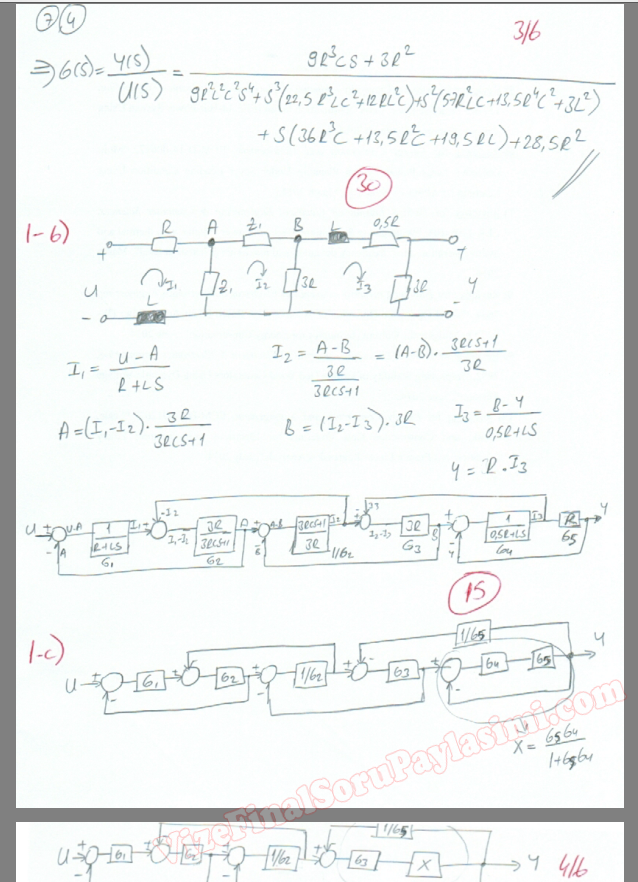 7 4
3/6
⇒ G(S) = Y(S)/U(S) = (9R³CS + 3R²) / (9R²L²C²S⁴ + S³(22,5R³LC² + 12RL²C) + S²(57R²LC + 13,5R⁴C² + 3L²)
+ S(36R³C + 13,5R²C + 19,5RL) + 28,5R²
30
1-b)
R A Z₁ B L 0,5R
+ +
U I₁ Z₁ I₂ 3R I₃ 3R Y
- L -
I₁ = (U-A)/(R+LS)
I₂ = (A-B)/(3R/(3RCS+1)) = (A-B) · (3RCS+1)/(3R)
A = (I₁-I₂) · 3R/(3RCS+1)
B = (I₂-I₃) · 3R
I₃ = (B-Y)/(0,5R+LS)
Y = R · I₃
-I₂
U + U-A 1/(R+LS) I₁ + I₁-I₂ 3R/(3RCS+1) A + A-B (3RCS+1)/3R I₂ + I₂-I₃ 3R B + 1/(0,5R+LS) I₃ R Y
- A G₁ G₂ - B 1/G₂ G₃ - Y G₄ G₅
15
1-c)
1/G5
U + G₁ + G₂ + 1/G₂ + G3 + G4 G5 Y
- - - -
X = G5G4/(1+G5G4)
VizeFinalSoruPaylasimi.com
1/G5
U + G₁ G₂ + 1/G₂ + G3 X Y
4/6